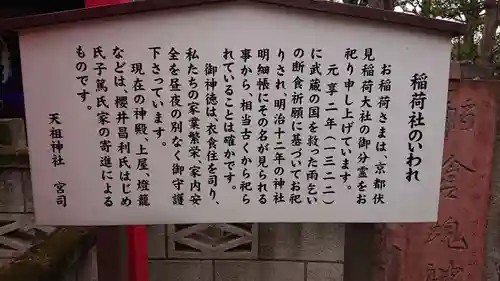 稲荷社のいわれ
お稲荷さまは、京都伏
見稲荷大社の御分霊をお
祀り申し上げています。
元享二年(一三二二)
に武蔵の国を救った雨乞い
の断食祈願に基づいてお祀
りされ、明治十二年の神社
明細帳にその名が見られる
事から、相当古くから祀ら
れていることは確かです。
御神徳は、衣食住を司り、
私たちの家業繁栄、家内安
全を昼夜の別なく御守護
下さっています。
現在の神殿、上屋、燈籠
などは、櫻井昌利氏はじめ
氏子篤氏家の寄進による
ものです。
天祖神社 宮司